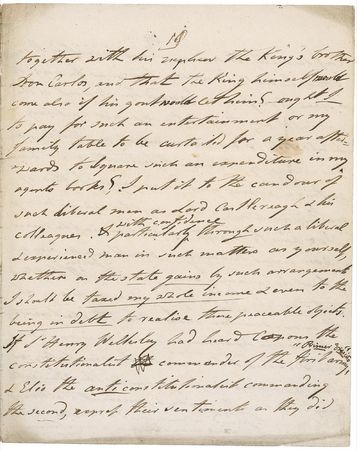 18
together with his nephew the King's brother
Don Carlos, and that the King himself would
come also if his gout would let him? ought I
to pay for such an entertainment or my
family table to be curtailed for a year after-
wards to square such an expenditure in my
agents books? I put it to the candour of
such liberal men as Lord Castlereagh & his
colleagues & with confidence particularly through such a liberal
& experienced man in such matters as yourself,
whether as the state gains by such arrangement
I should be taxed my whole income & even to the
being in debt to realise those peaceable objects.
If Sr Henry Wellesley had heard Campana the
constitutionalist commander of the first army
& Elio the anti constitutionalist commanding
the second, express their sentiments as they did